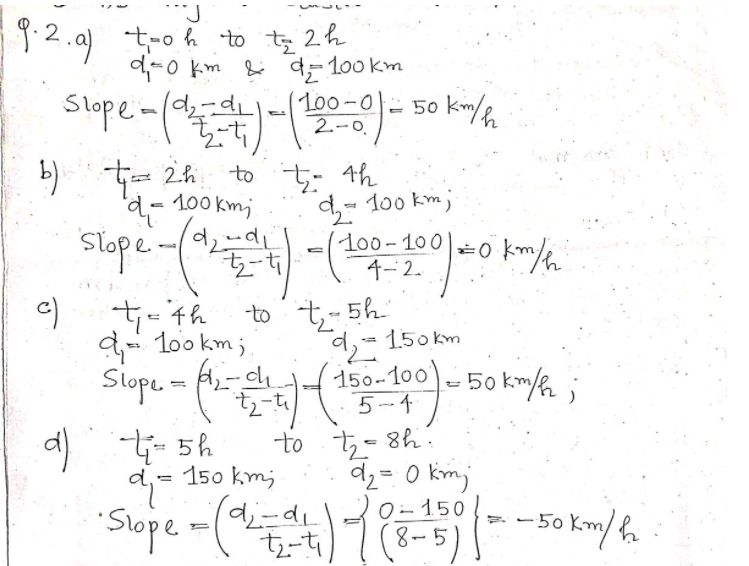 Q.2.a) t₁=0 h to t₂ 2h
d₁=0 km & d₂=100 km
Slope = ((d₂-d₁)/(t₂-t₁)) = ((100-0)/(2-0)) = 50 km/h
b) t₁= 2h to t₂= 4h
d₁= 100 km; d₂= 100 km;
Slope = ((d₂-d₁)/(t₂-t₁)) = ((100-100)/(4-2)) = 0 km/h
c) t₁= 4h to t₂= 5h
d₁= 100 km; d₂= 150 km
Slope = ((d₂-d₁)/(t₂-t₁)) = ((150-100)/(5-4)) = 50 km/h;
d) t₁= 5h to t₂= 8h.
d₁= 150 km; d₂= 0 km;
Slope = ((d₂-d₁)/(t₂-t₁)) = {(0-150)/(8-5)} = -50 km/h.